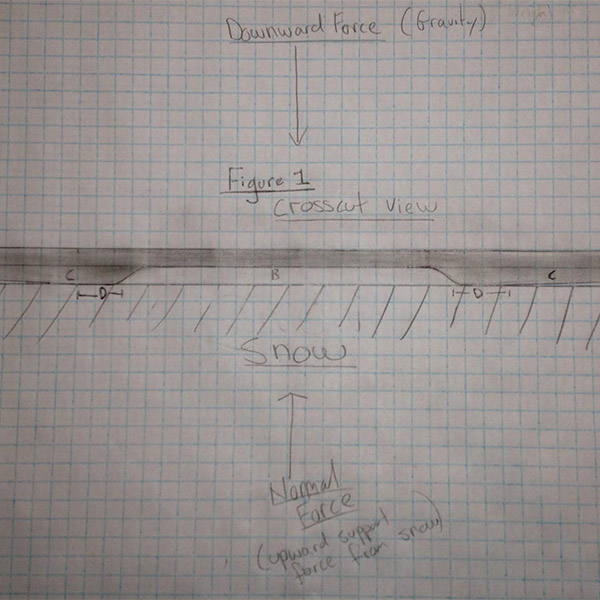 Downward Force (Gravity)
Figure 1
Crosscut View
C B C
D D
Snow
Normal
Force
(upward support
force from snow)